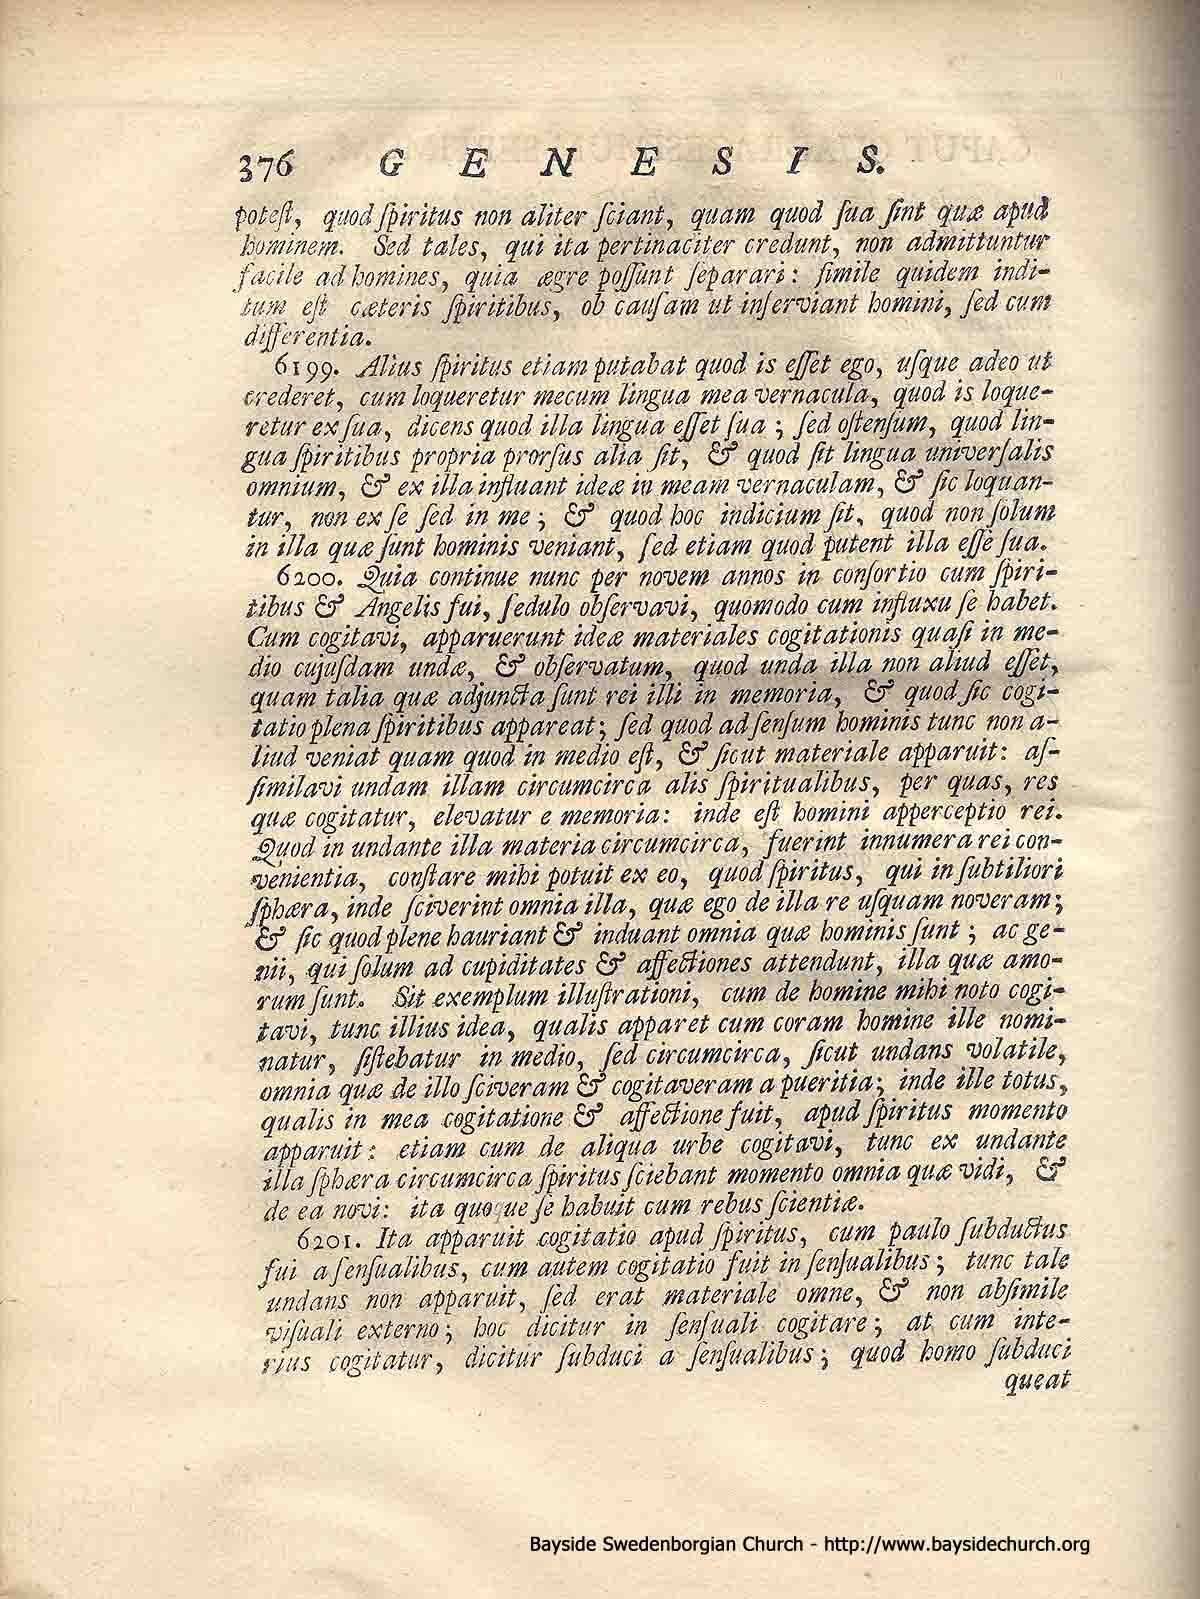 376 GENESIS.
poteſt, quod ſpiritus non aliter ſciant, quam quod ſua ſint quæ apud
hominem. Sed tales, qui ita pertinaciter credunt, non admittuntur
facile ad homines, quia ægre poſſunt ſeparari: ſimile quidem indi-
tum eſt cæteris ſpiritibus, ob cauſam ut inſerviant homini, ſed cum
differentia.
6199. Alius ſpiritus etiam putabat quod is eſſet ego, uſque adeo ut
crederet, cum loqueretur mecum lingua mea vernacula, quod is loque-
retur ex ſua, dicens quod illa lingua eſſet ſua; ſed oſtenſum, quod lin-
gua ſpiritibus propria prorſus alia ſit, & quod ſit lingua univerſalis
omnium, & ex illa influant ideæ in meam vernaculam, & ſic loquan-
tur, non ex ſe ſed in me; & quod hoc indicium ſit, quod non ſolum
in illa quæ ſunt hominis veniant, ſed etiam quod putent illa eſſe ſua.
6200. Quia continue nunc per novem annos in conſortio cum ſpiri-
tibus & Angelis fui, ſedulo obſervavi, quomodo cum influxu ſe habet.
Cum cogitavi, apparuerunt ideæ materiales cogitationis quaſi in me-
dio cujuſdam undæ, & obſervatum, quod unda illa non aliud eſſet,
quam talia quæ adjuncta ſunt rei illi in memoria, & quod ſic cogi-
tatio plena ſpiritibus appareat; ſed quod ad ſenſum hominis tunc non a-
liud veniat quam quod in medio eſt, & ſicut materiale apparuit: aſ-
ſimilavi undam illam circumcirca alis ſpiritualibus, per quas, res
quæ cogitatur, elevatur e memoria: inde eſt homini apperceptio rei.
Quod in undante illa materia circumcirca, fuerint innumera rei con-
venientia, conſtare mihi potuit ex eo, quod ſpiritus, qui in ſubtiliori
ſphæra, inde ſciverint omnia illa, quæ ego de illa re uſquam noveram;
& ſic quod plene hauriant & induant omnia quæ hominis ſunt; ac ge-
nii, qui ſolum ad cupiditates & affectiones attendunt, illa quæ amo-
rum ſunt. Sit exemplum illuſtrationi, cum de homine mihi noto cogi-
tavi, tunc illius idea, qualis apparet cum coram homine ille nomi-
natur, ſiſtebatur in medio, ſed circumcirca, ſicut undans volatile,
omnia quæ de illo ſciveram & cogitaveram a pueritia; inde ille totus,
qualis in mea cogitatione & affectione fuit, apud ſpiritus momento
apparuit: etiam cum de aliqua urbe cogitavi, tunc ex undante
illa ſphæra circumcirca ſpiritus ſciebant momento omnia quæ vidi, &
de ea novi: ita quoque ſe habuit cum rebus ſcientiæ.
6201. Ita apparuit cogitatio apud ſpiritus, cum paulo ſubductus
fui a ſenſualibus, cum autem cogitatio fuit in ſenſualibus; tunc tale
undans non apparuit, ſed erat materiale omne, & non abſimile
viſuali externo; hoc dicitur in ſenſuali cogitare; at cum inte-
rius cogitatur, dicitur ſubduci a ſenſualibus; quod homo ſubduci
queat
Bayside Swedenborgian Church - http://www.baysidechurch.org